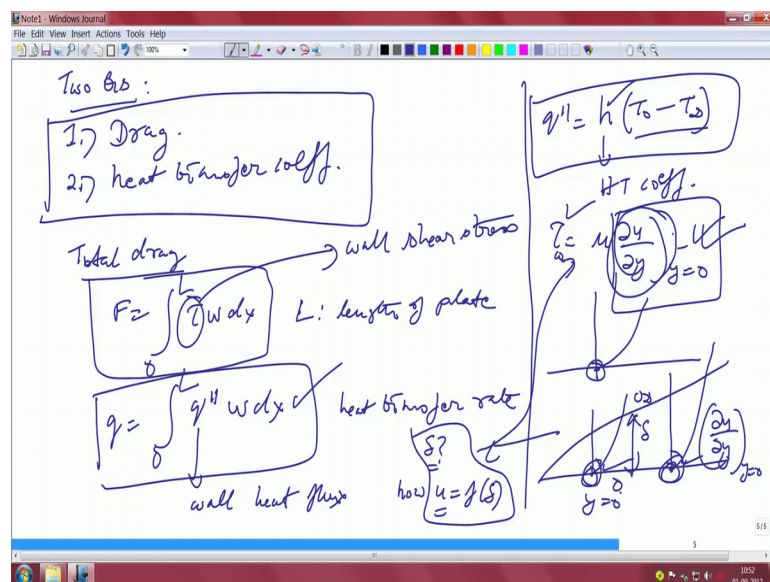 Note1 - Windows Journal
File Edit View Insert Actions Tools Help
100%
Two Qts :
1.) Drag.
2.) heat transfer coeff.
Total drag
F = ∫₀ᴸ τ w dx
wall shear stress
L : length of plate
q = ∫₀ᴸ q'' w dx
heat transfer rate
wall heat flux
δ?
how u = f(δ)
q'' = h (T₀ - T∞)
HT coeff.
τ = μ (∂u/∂y) y=0
δ
0
y=0
(∂u/∂y) y=0
5/5
5
10:52